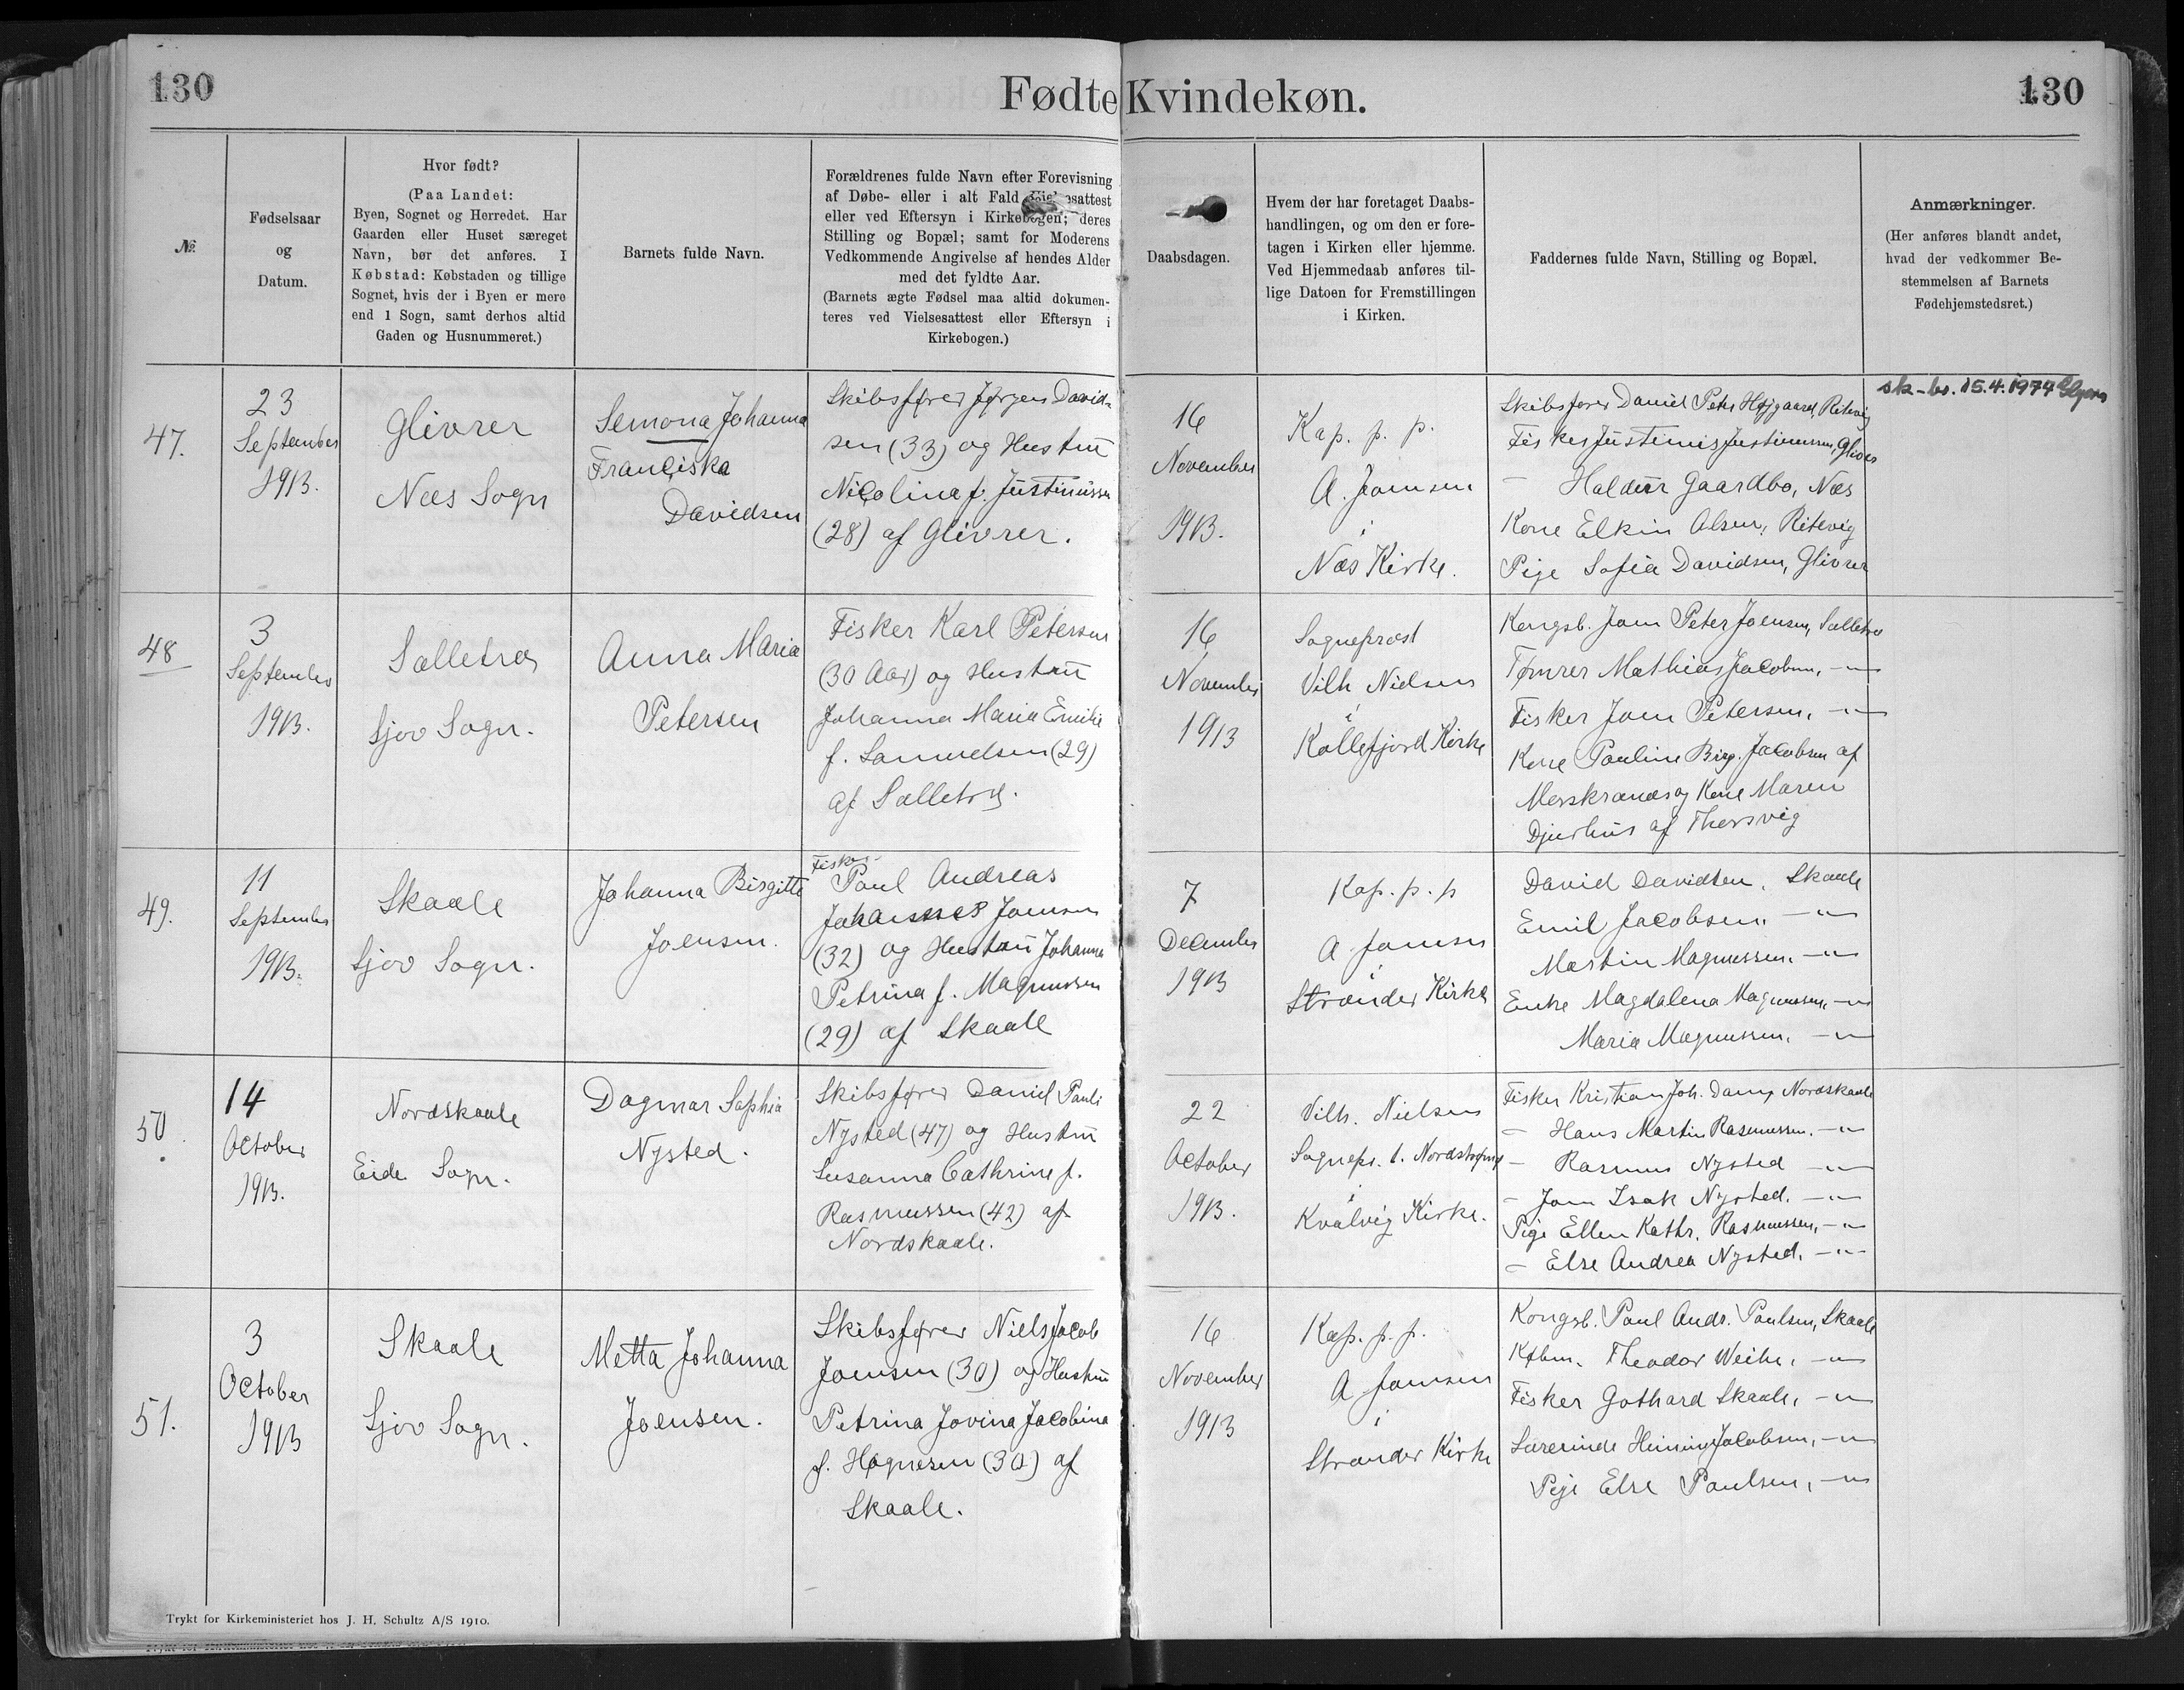 130
Fødte Kvindekøn.
130
№.
Fødselsaar
og
Datum.
Hvor født?
(Paa Landet:
Byen, Sognet og Herredet. Har
Gaarden eller Huset særeget
Navn, bør det anføres. I
Købstad: Købstaden og tillige
Sognet, hvis der i Byen er mere
end 1 Sogn, samt derhos altid
Gaden og Husnummeret.)
Barnets fulde Navn.
Forældrenes fulde Navn efter Forevisning
af Døbe- eller i alt Fald
eller ved Eftersyn i Kirkebogen; deres
Stilling og Bopæl; samt for Moderens
Vedkommende Angivelse af hendes Alder
med det fyldte Aar.
(Barnets ægte Fødsel maa altid dokumen-
teres ved Vielsesattest eller Eftersyn i
Kirkebogen.)
Daabsdagen.
Hvem der har foretaget Daabs-
handlingen, og om den er fore-
tagen i Kirken eller hjemme.
Ved Hjemmedaab anføres til-
lige Datoen for Fremstillingen
i Kirken.
Faddernes fulde Navn, Stilling og Bopæl.
Anmærkninger.
(Her anføres blandt andet,
hvad der vedkommer Be-
stemmelsen af Barnets
Fødehjemstedsret.)
47.
23
September
1913.
Glivrer
Næs Sogn
Semona Johanna
Franciska
Davidsen
Skibsfører Jørgen David-
sen (33) og Hustru
Nicolina f. Justinussen
(28) af Glivrer.
16
November
1913.
Kap. p. p.
A. Joensen
i
Næs Kirke.
Skibsfører Daniel Peter Højgaard, Ritevig
Fisker Justinus Justinussen, Glivrer
— Haldur Gaardbo, Næs
Kone Elkin Olsen, Ritevig
Pige Sofia Davidsen, Glivrer
sk-br. 15.4.1974
48
3
September
1913.
Salletræ
Sjov Sogn.
Anna Maria
Petersen
Fisker Karl Petersen
(30 Aar) og Hustru
Johanna Maria Emilie
f. Samuelsen (29)
af Salletræ.
16
November
1913
Sogneprost
Vilh Nielsen
i
Kollefjord Kirke
Kongsb. Joen Peter Joensen, Salletræ
Tømrer Mathias Jacobsen, —"—
Fisker Joen Petersen, —"—
Kone Pauline Birg. Jacobsen af
og Kone Maren
Djurhus af Thorsvig
49.
11
September
1913.
Skaale
Sjov Sogn.
Johanna Birgitte
Joensen.
Fisker
Poul Andreas
Johannes Joensen
(32) og Hustru Johanna
Petrina f. Magnussen
(29) af Skaale
7
December
1913
Kap. p. p
A Joensen
i
Strænder Kirke
David Davidsen, Skaale
Emil Jacobsen, —"—
Martin Magnussen, —"—
Enke Magdalena Magnussen, —"—
Maria Magnussen, —"—
50.
14
October
1913.
Nordskaale
Eide Sogn.
Dagmar Sophia
Nysted.
Skibsfører Daniel Pauli
Nysted (47) og Hustru
Susanna Cathrine f.
Rasmussen (42) af
Nordskaale.
22
October
1913.
Vilh. Nielsen
Sognepr. t. Nordstrømø
i
Kvalvig Kirke.
Fisker Kristian Joh. Dam, Nordskaale
— Hans Martin Rasmussen, —"—
— Rasmus Nysted —"—
— Joen Isak Nysted, —"—
Pige Ellen Kathr. Rasmussen, —"—
— Else Andrea Nysted, —"—
51.
3
October
1913
Skaale
Sjov Sogn.
Metta Johanna
Joensen.
Skibsfører Niels Jacob
Joensen (30) og Hustru
Petrina Jovina Jacobina
f. Høgnesen (30) af
Skaale.
16
November
1913
Kap. p. p.
A Joensen
i
Strænder Kirke
Kongsb. Poul Andr. Poulsen, Skaale
Købm. Theodor Weihe, —"—
Fisker Gothard Skaale, —"—
Lærerinde Jacobsen, —"—
Pige Else Poulsen, —"—
Trykt for Kirkeministeriet hos J. H. Schultz A/S 1910.